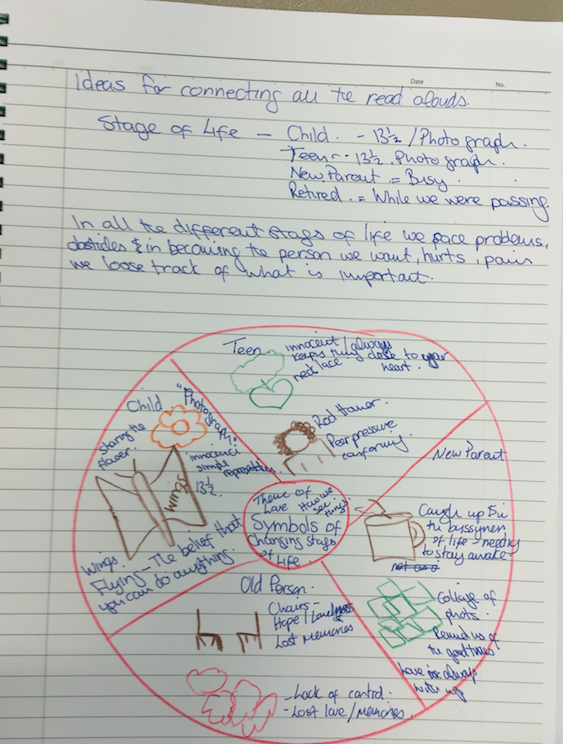 Date
No.
Ideas for connecting all the read alouds.
Stage of life - Child. - 13½ / Photograph.
Teen - - 13½ . Photograph.
New Parent = Busy.
Retired. = While we were passing
In all the different stages of life we face problems,
obsticles & in becoming the person we want, hurts, pain
we loose track of what is important.
Teen
innocent / always
keeps thing close to your
necklace. heart.
Child
"Photograph"
sharing the
flower.
innocence
simple
13½
wings
Wings.
Flying - The belief that
you can do anything.
Red Hair
conforming.
New Parent
Caught up in
the bussyness
of life - needing
to stay awake
Theme of
Love How we
see
things
Symbols of
Changing Stages
of Life.
Collage of
photos.
Remind us of
the good times
Love is always
with us
Old Person.
Chairs -
Hope / Loneliness
Lost Memories
- Lack of control.
- Lost love / Memories.